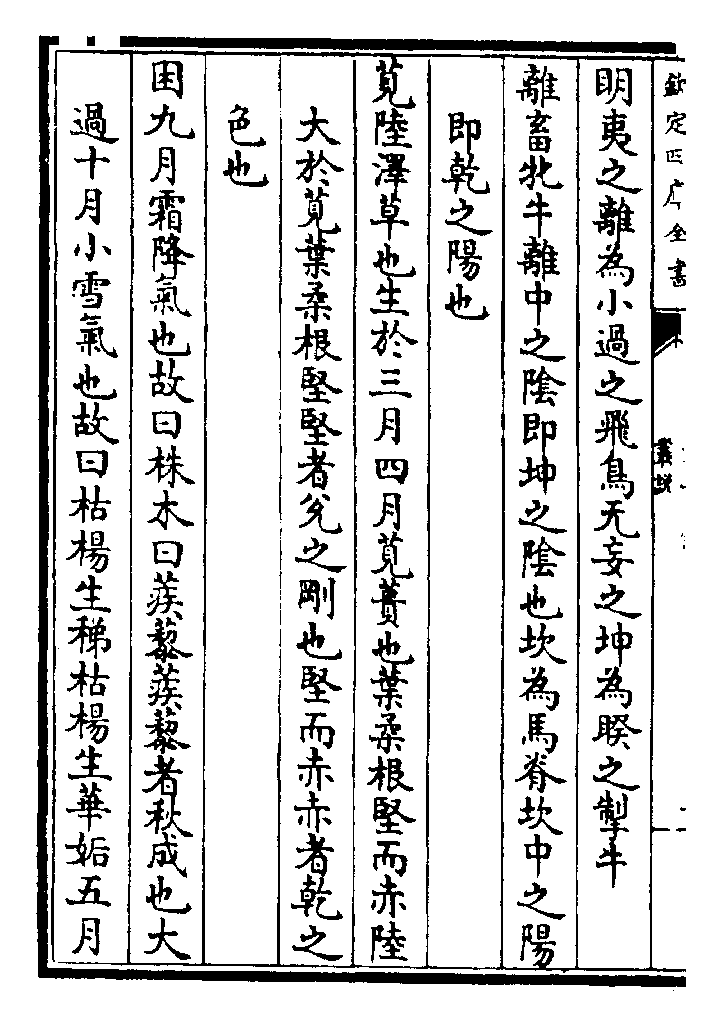 欽定四庫全書
叢說
明夷之離為小過之飛鳥无妄之坤為睽之掣牛
離畜牝牛離中之陰即坤之陰也坎為馬脊坎中之陽
即乾之陽也
莧陸澤草也生於三月四月莧蕢也葉柔根堅而赤陸
大於莧葉柔根堅堅者兊之剛也堅而赤赤者乾之
色也
困九月霜降氣也故曰株木曰蒺藜蒺藜者秋成也大
過十月小雪氣也故曰枯楊生稊枯楊生華姤五月